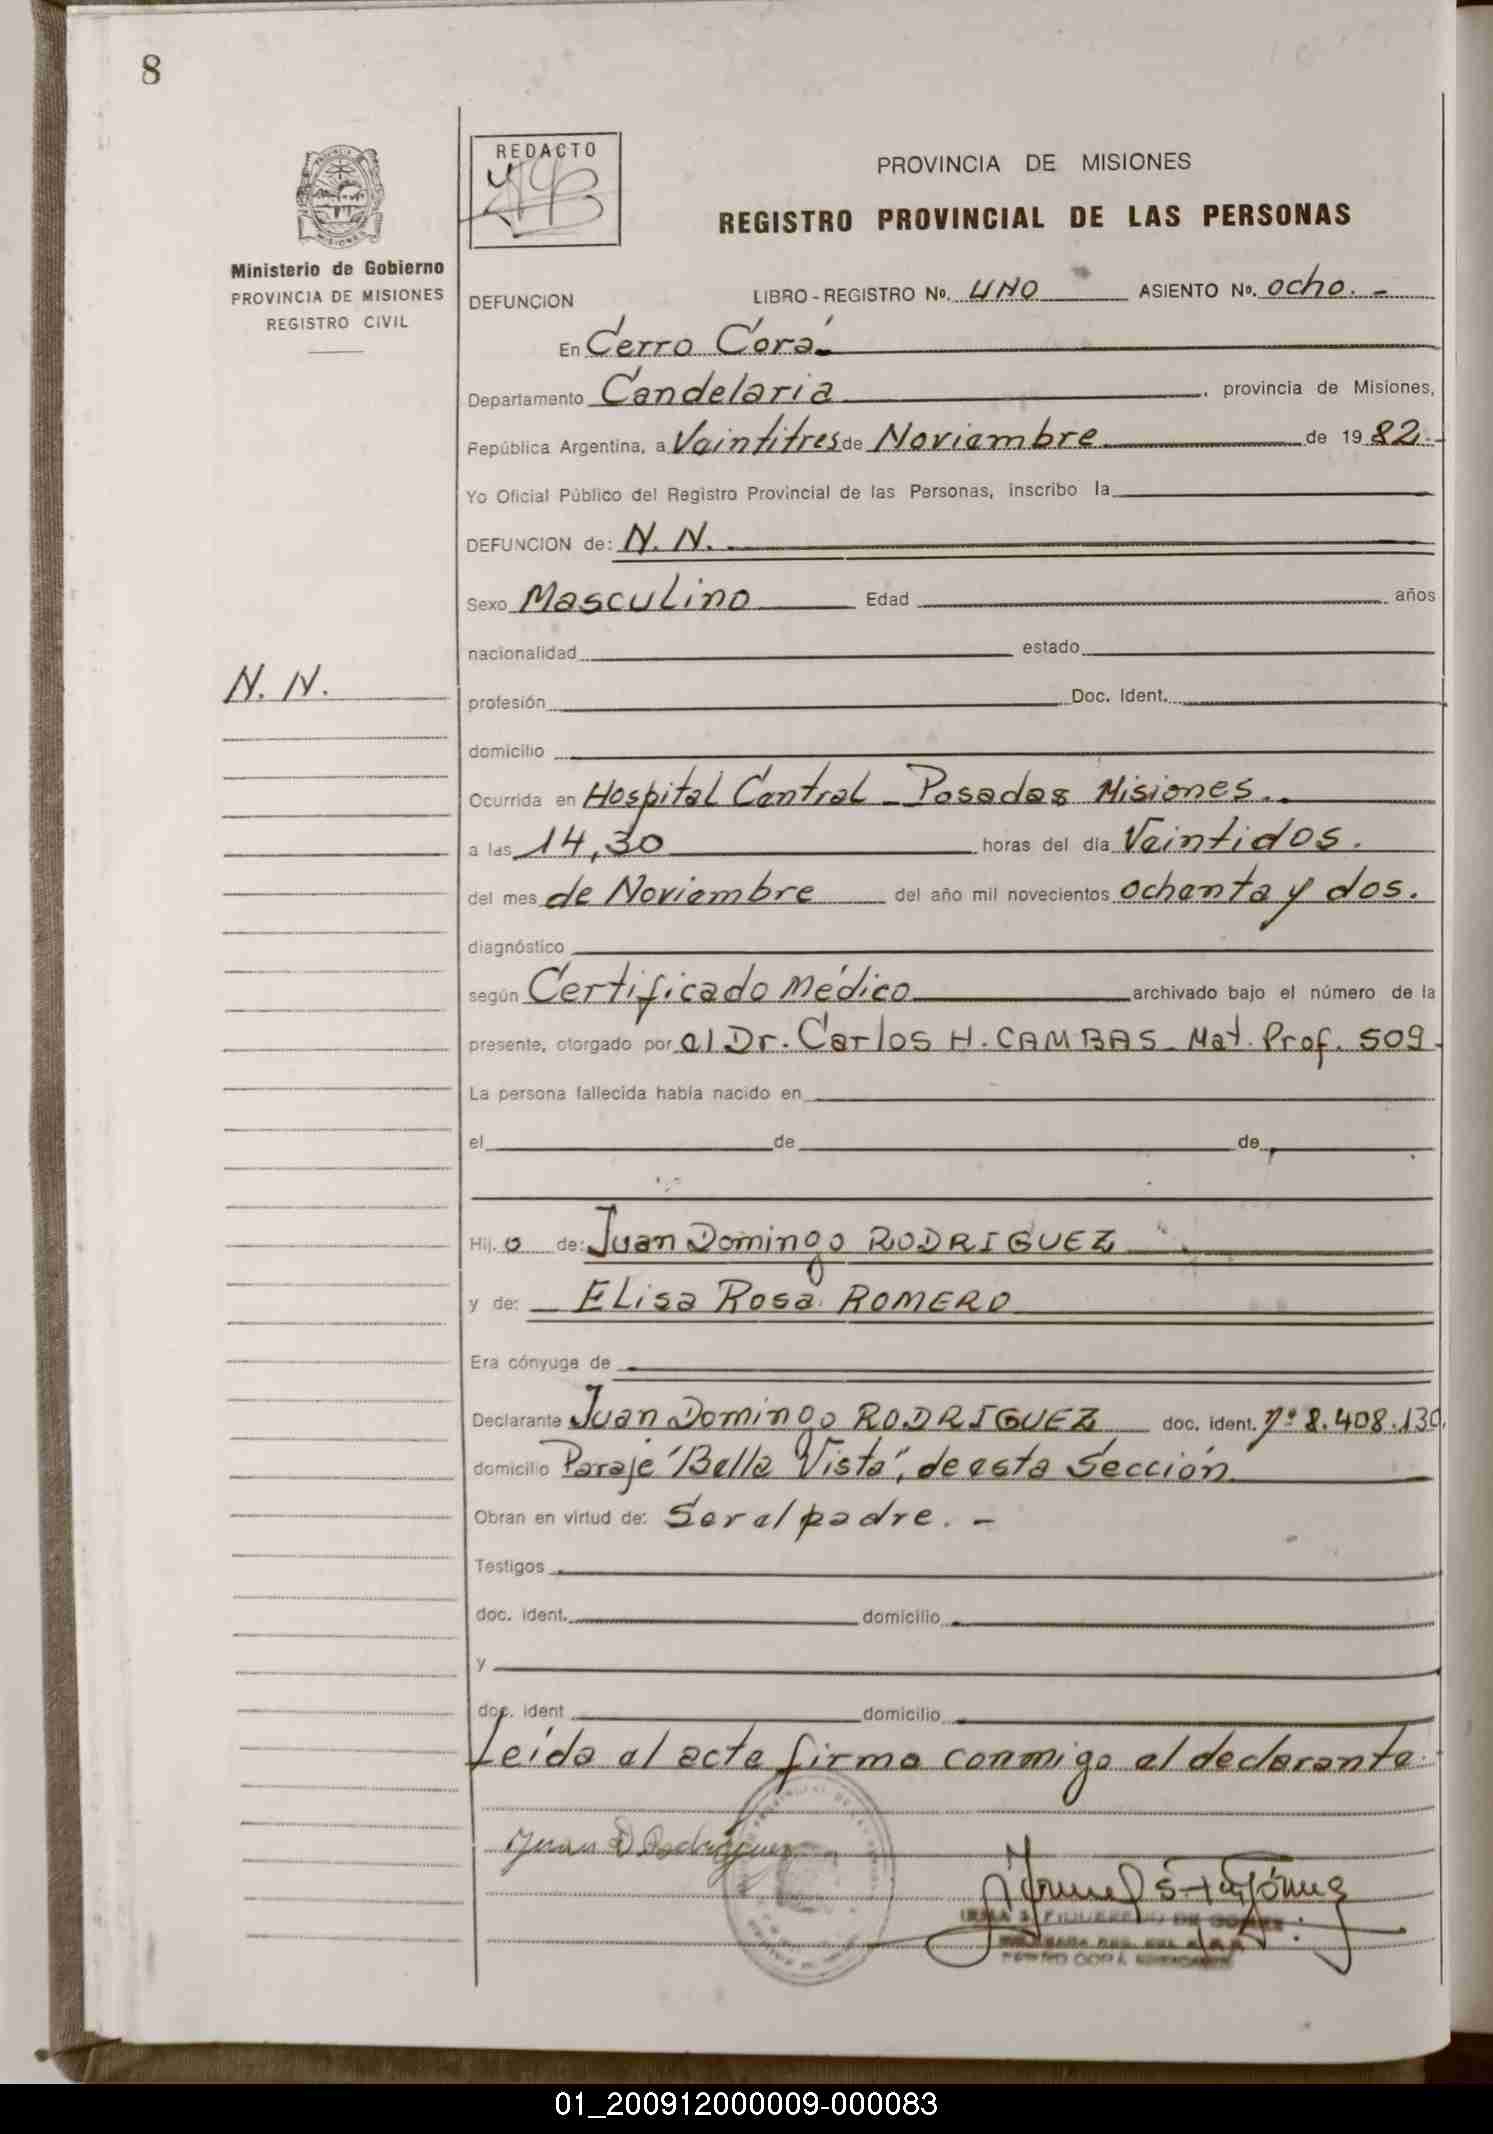 8
REDACTO
PROVINCIA DE MISIONES
REGISTRO PROVINCIAL DE LAS PERSONAS
Ministerio de Gobierno
PROVINCIA DE MISIONES
REGISTRO CIVIL
DEFUNCION LIBRO-REGISTRO Nº. UNO ASIENTO Nº. ocho. -
En Cerro Corá
Departamento Candelaria, provincia de Misiones,
República Argentina, a Veintitres de Noviembre de 1982.-
Yo Oficial Público del Registro Provincial de las Personas, inscribo la
DEFUNCION de: N. N.
Sexo Masculino Edad años
nacionalidad estado
N. N.
profesión Doc. Ident.
domicilio
Ocurrida en Hospital Central - Posadas Misiones.
a las 14,30 horas del día Veintidos.
del mes de Noviembre del año mil novecientos ochenta y dos.
diagnóstico
según Certificado Médico archivado bajo el número de la
presente, otorgado por el Dr. Carlos H. CAMBAS Mat. Prof. 509.
La persona fallecida había nacido en
el de de
Hij. o de: Juan Domingo RODRIGUEZ
y de: ELisa Rosa ROMERO
Era cónyuge de
Declarante Juan Domingo RODRIGUEZ doc. ident. nº 8.408.130.
domicilio Paraje "Bella Vista", de esta Sección
Obran en virtud de: Ser el padre. -
Testigos
doc. ident. domicilio
y
doc. ident domicilio
Leída el acta firma conmigo el declarante.
Juan D Rodriguez
IRMA S. FIGUEREDO DE GOMEZ
CERRO CORA
01_200912000009-000083